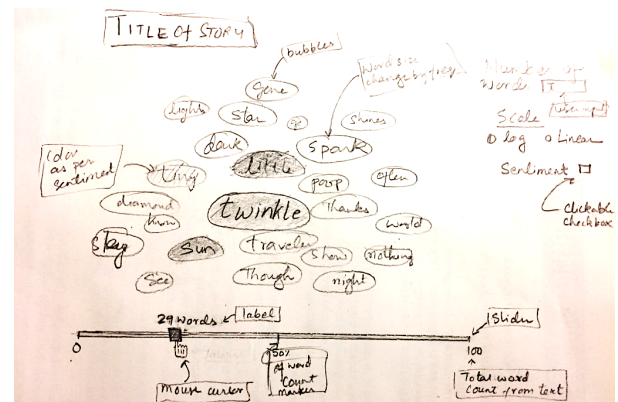 TITLE OF STORY
bubbles
Word size
change by freq.
Number of
Words I
User input
Scale
log Linear
Sentiment
Clickable
checkbox
Color
as per
sentiment
Gone
lights
Star
shines
dark
Spark
tiny
little
poop
often
diamond
twinkle
Thanks
know
world
Stay
Sun
traveler
show
nothing
See
Though
night
29 words
label
Slider
0
50%
of word
count
marker
100
Mouse cursor
Total word
count from text